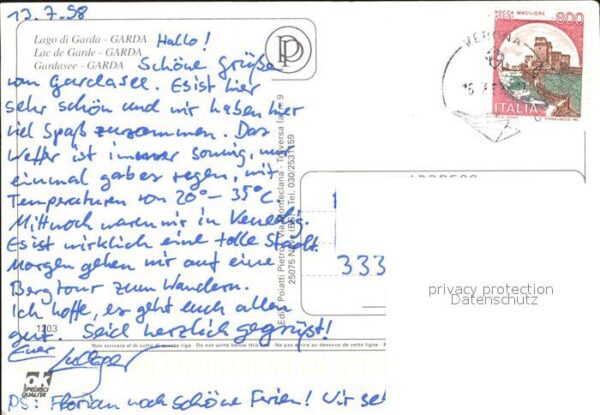 13.7.98
Lago di Garda - GARDA
Lac de Garde - GARDA
Gardasee - GARDA
Hallo!
Schöne Grüße
vom Gardasee. Es ist hier
sehr schön und wir haben hier
viel Spaß zusammen. Das
Wetter ist immer sonnig, nur
einmal gab es regen, mit
Temperaturen von 20° - 35°C.
Mittwoch waren wir in Venedig.
Es ist wirklich eine tolle Stadt.
Morgen gehen wir auf eine
Bergtour zum Wandern.
Ich hoffe, es geht euch allen
gut. Seid herzlich gegrüßt!
Euer
PS: Florian noch schöne Ferien! Wir
1203
Non scrivere al di sotto di questa riga - Do not write below this line - Ne pas écrire au dessous de cette ligne
OK
SPEDISCI
QUALITÀ
PD
25075 (BS) Tel. 030/2531159
ROCCA MAGGIORE
ASSISI
800
ITALIA
VERONA
333
privacy protection
Datenschutz